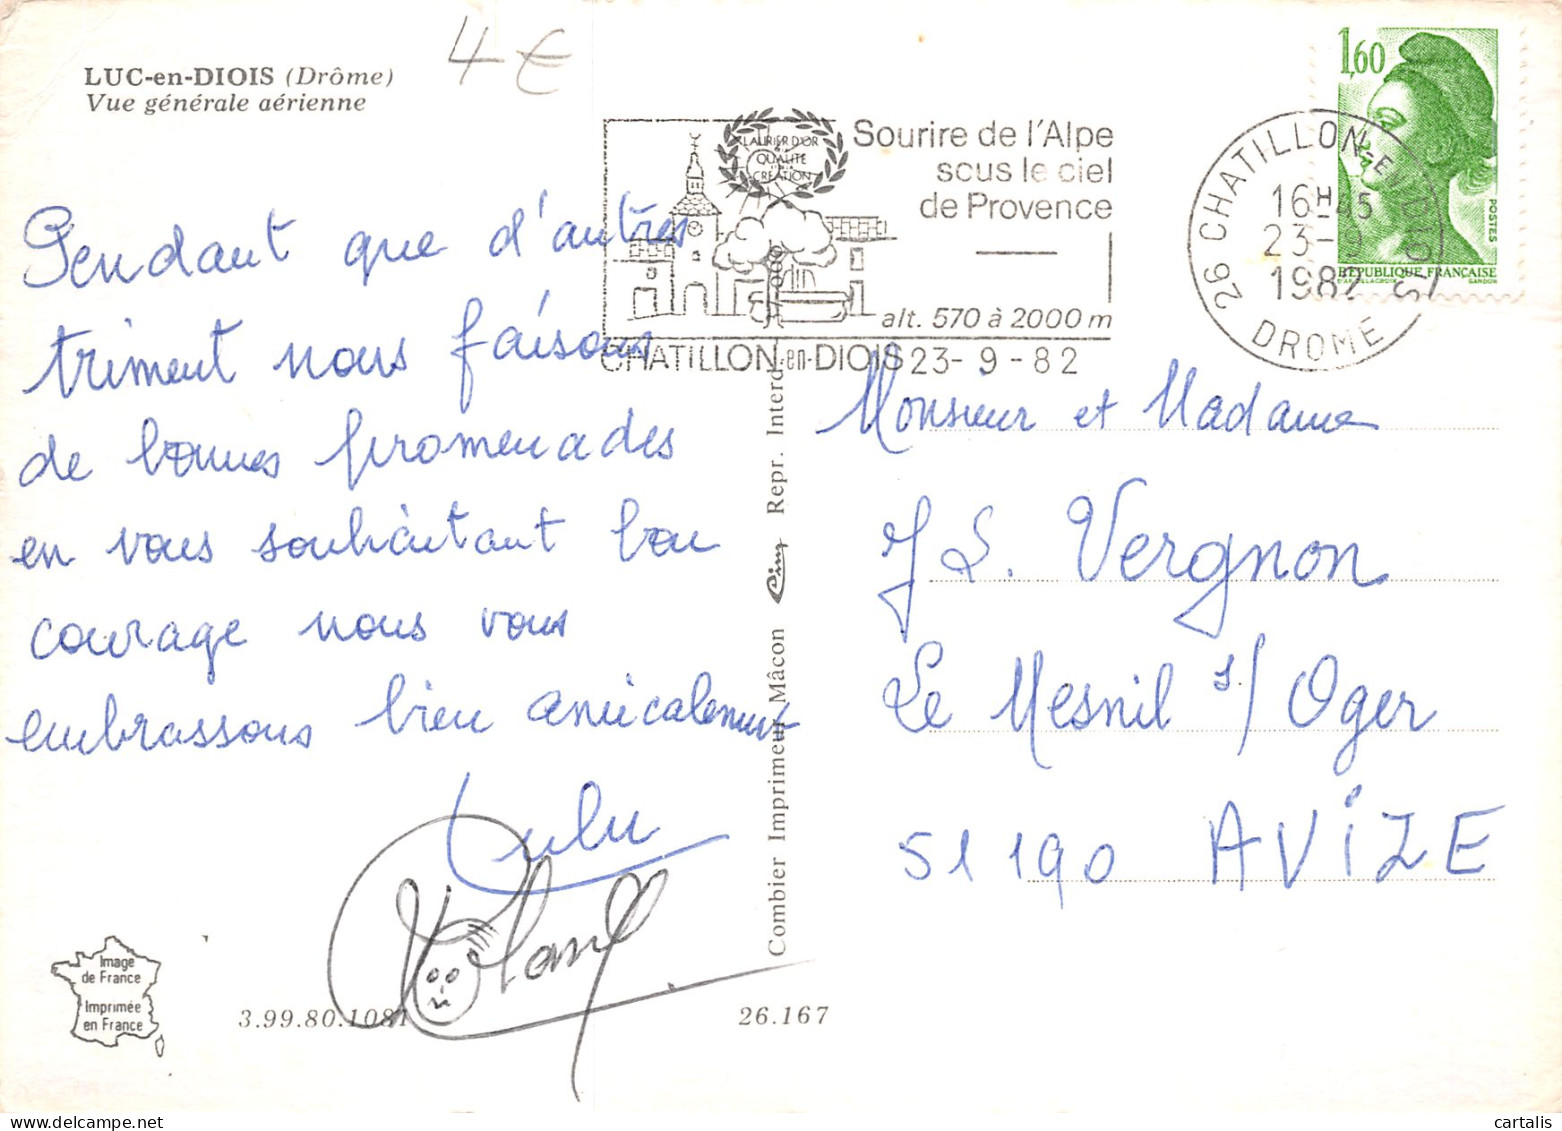 4 €
LUC-en-DIOIS (Drôme)
Vue générale aérienne
Pendant que d'autres
triment nous faisons
de bonnes promenades
en vous souhaitant bon
courage nous vous
embrassons bien amicalement
Lulu
Roland
Image
de France
Imprimée
en France
3.99.80.1081
26.167
Combier Imprimeur Mâcon Cim Repr. Interd.
LAURIER D'OR
QUALITÉ
CRÉATION
Sourire de l'Alpe
sous le ciel
de Provence
alt. 570 à 2000 m
CHATILLON-en-DIOIS 23-9-82
26 CHATILLON-EN-DIOIS
16H45
23-9
1982
DROME
1,60
POSTES
REPUBLIQUE FRANÇAISE
D'AP. DELACROIX GANDON
Monsieur et Madame
J L. Vergnon
Le Mesnil s/ Oger
51190 AVIZE
cartalis